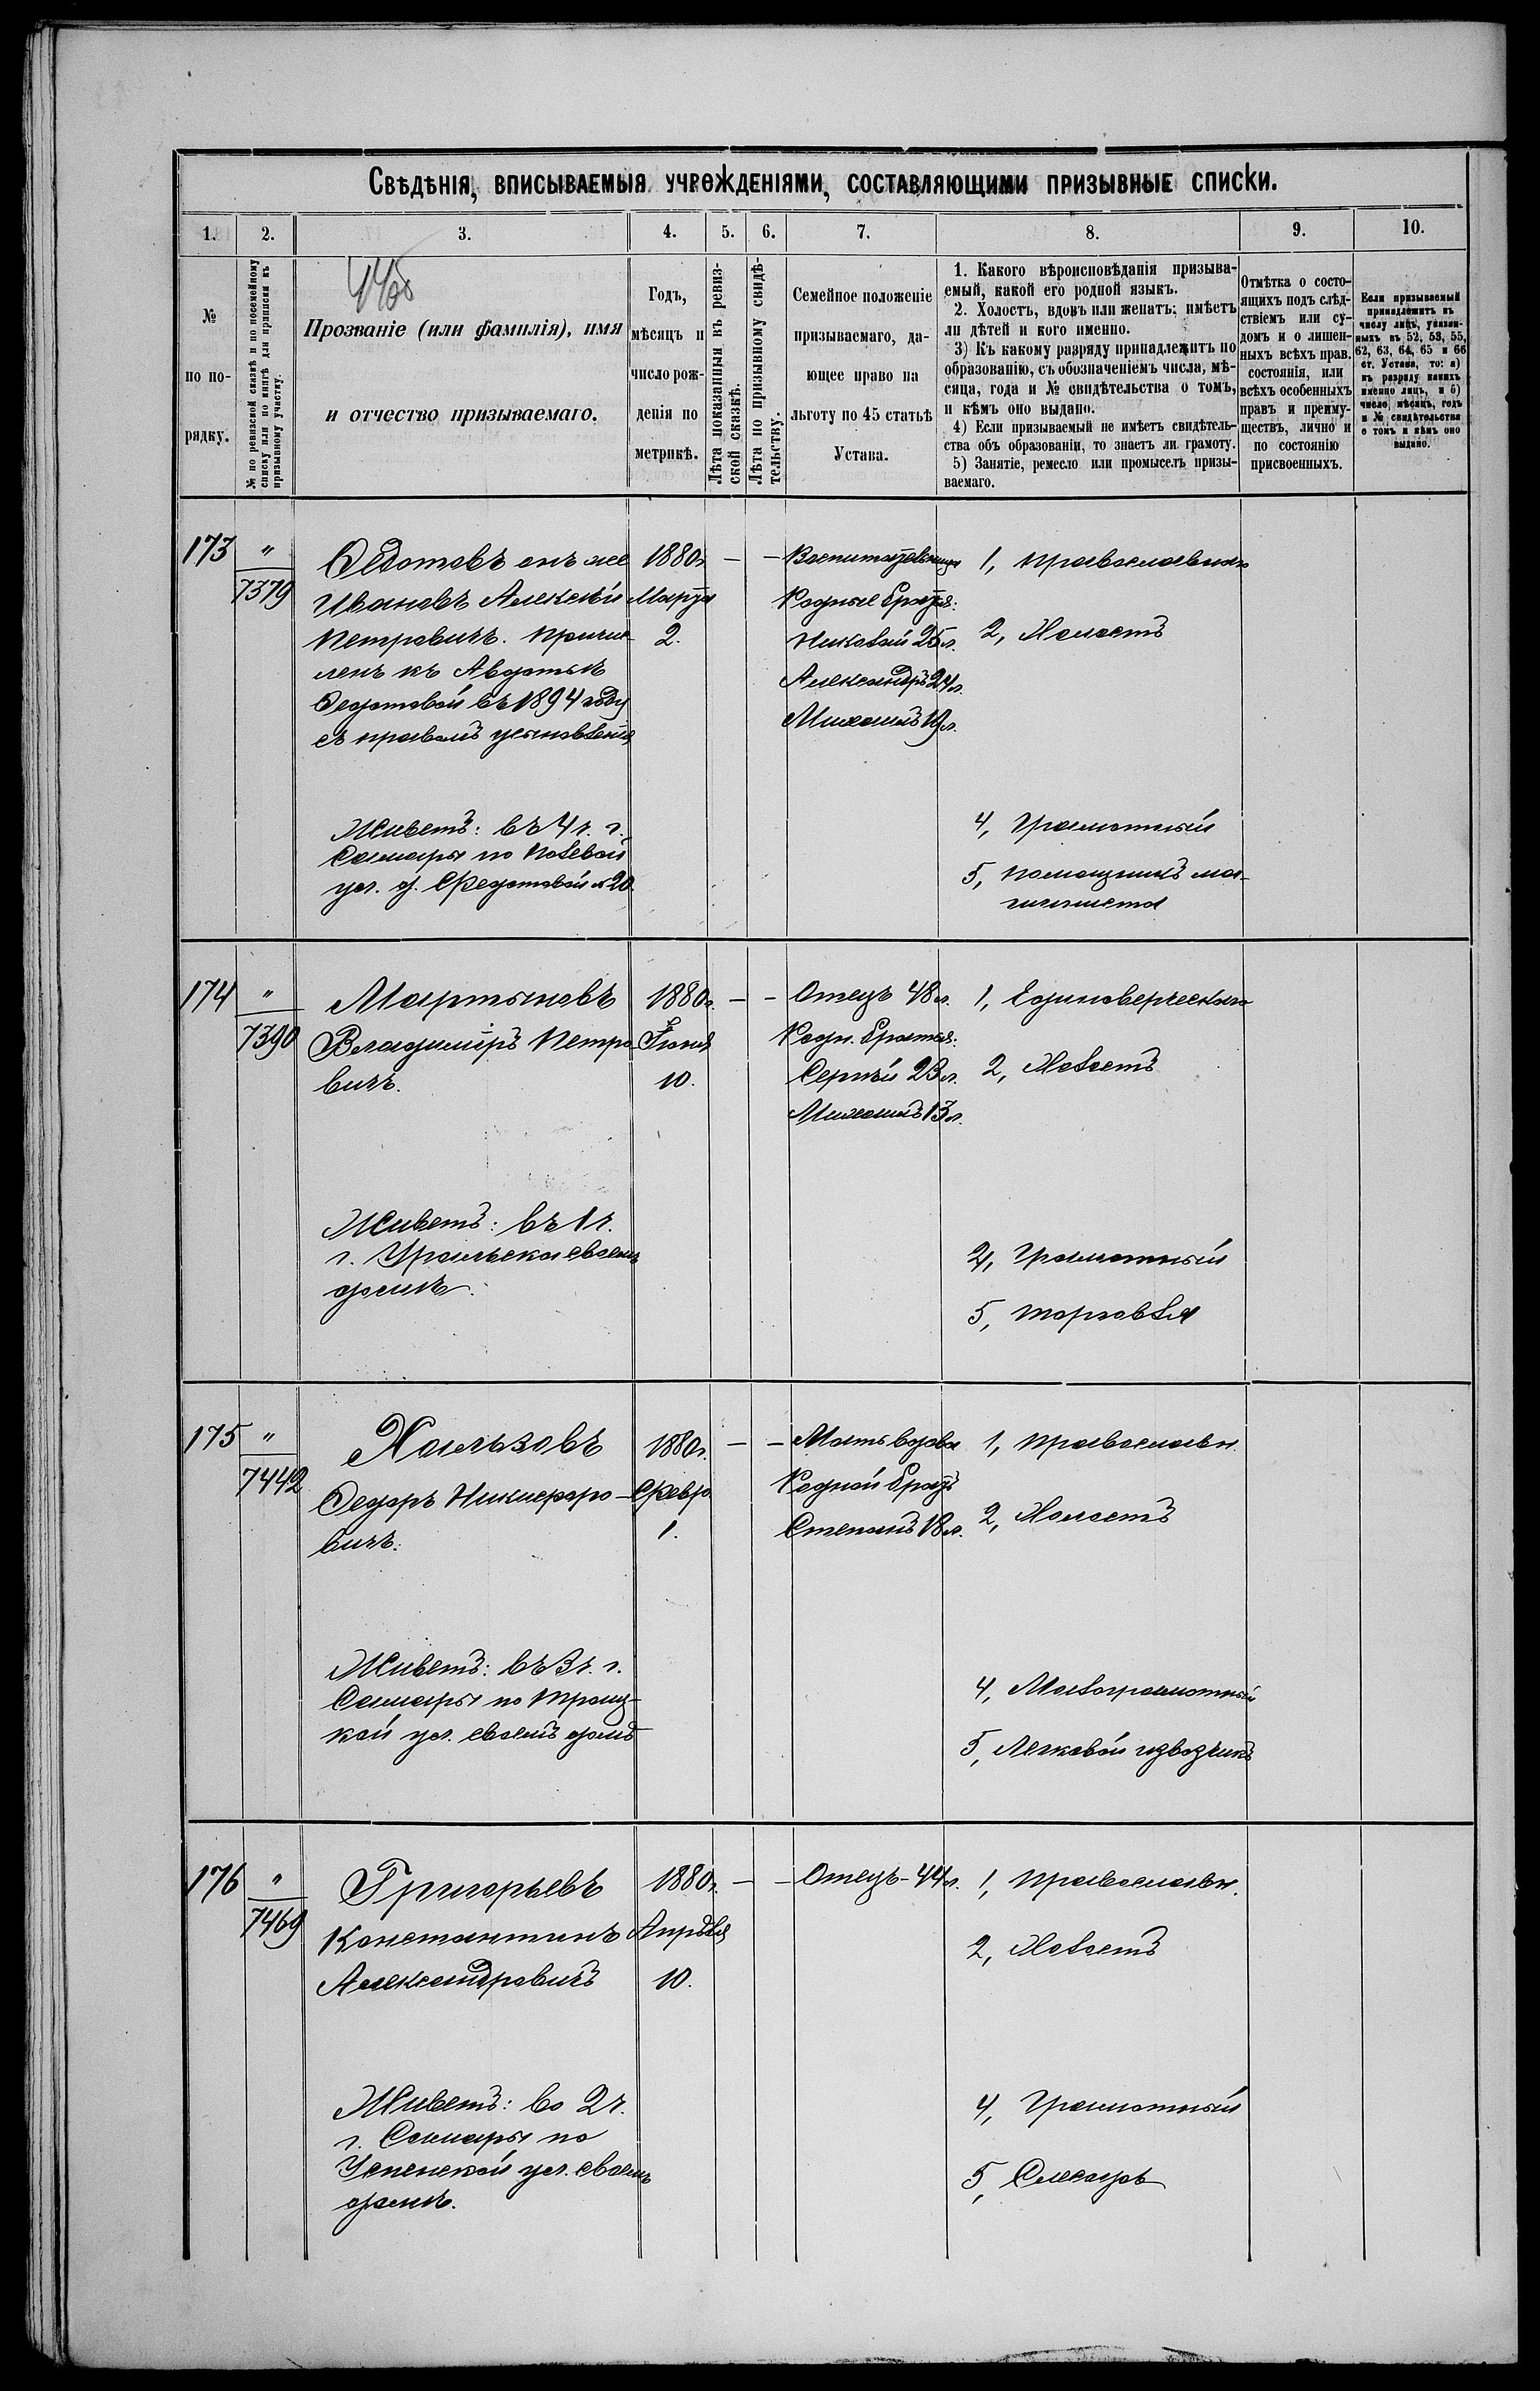 Свѣдѣнія, вписываемыя учрежденіями, составляющими призывные списки.
1. 2. 3. 4. 5. 6. 7. 8. 9. 10.
№ по порядку.
№ по ревизской сказкѣ и по посемейному списку или по книгѣ для приписки къ призывному участку.
Прозваніе (или фамилія), имя
и отчество призываемаго.
Годъ,
мѣсяцъ и
число рож-
денія по
метрикѣ.
Лѣта показанныя въ ревиз-
ской сказкѣ.
Лѣта по призывному свидѣ-
тельству.
Семейное положеніе
призываемаго, да-
ющее право на
льготу по 45 статьѣ
Устава.
1. Какого вѣроисповѣданія призыва-
емый, какой его родной языкъ.
2. Холостъ, вдовъ или женатъ; имѣетъ
ли дѣтей и кого именно.
3) Къ какому разряду принадлежитъ по
образованію, съ обозначеніемъ числа, мѣ-
сяца, года и № свидѣтельства о томъ,
и кѣмъ оно выдано.
4) Если призываемый не имѣетъ свидѣтель-
ства объ образованіи, то знаетъ ли грамоту.
5) Занятіе, ремесло или промыселъ призы-
ваемаго.
Отмѣтка о состо-
ящихъ подъ слѣд-
ствіемъ или су-
домъ и о лишен-
ныхъ всѣхъ правъ
состоянія, или
всѣхъ особенныхъ
правъ и преиму-
ществъ, лично и
по состоянію
присвоенныхъ.
Если призываемый
принадлежитъ къ
числу лицъ, указан-
ныхъ въ 52, 53, 55,
62, 63, 64, 65 и 66
ст. Устава, то: а)
къ разряду какихъ
именно лицъ, и б)
число, мѣсяцъ, годъ
и № свидѣтельства
о томъ и кѣмъ оно
выдано.
173 "
7379
Ѳедотовъ онъ же
Ивановъ Алексѣй
Петровичъ. Причис-
ленъ къ Авдотьѣ
Ѳедотовой въ 1894 году
съ правомъ усыновленія
1880 г.
Марта
2.
— —
Воспитательница
Родные братья:
Николай 25 л.
Александръ 24 л.
Михаилъ 19 л.
1, Православнаго
2, Холостъ
Живетъ: въ 4 ч. г.
Самары по Полевой
ул. д. Федотовой № 20
4, Грамотный
5, Помощникъ ма-
шиниста
174 "
7390
Мартыновъ
Владиміръ Петро-
вичъ.
1880 г.
Іюня
10.
— —
Отецъ 48 л.
Родн. братья:
Сергѣй 23 л.
Михаилъ 13 л.
1, Единоверческаго
2, Холостъ
Живетъ: въ 1 ч.
г. Уральска своемъ
домѣ.
4, Грамотный
5, Торговля
175 "
7442
Хальзовъ
Ѳедоръ Никифоро-
вичъ.
1880 г.
Февр.
1.
— —
Мать вдова
Родной братъ
Степанъ 18 л.
1, Православн.
2, Холостъ
Живетъ: въ 3 ч. г.
Самары по Троиц-
кой ул. своемъ домѣ
4, Малограмотный
5, Легковой извозчикъ
176 "
7469
Григорьевъ
Константинъ
Александровичъ
1880 г.
Апрѣля
10.
— —
Отецъ - 44 л.
1, Православн.
2, Холостъ
Живетъ: во 2 ч.
г. Самары по
Успенской ул. своемъ
домѣ.
4, Грамотный
5, Слесарь